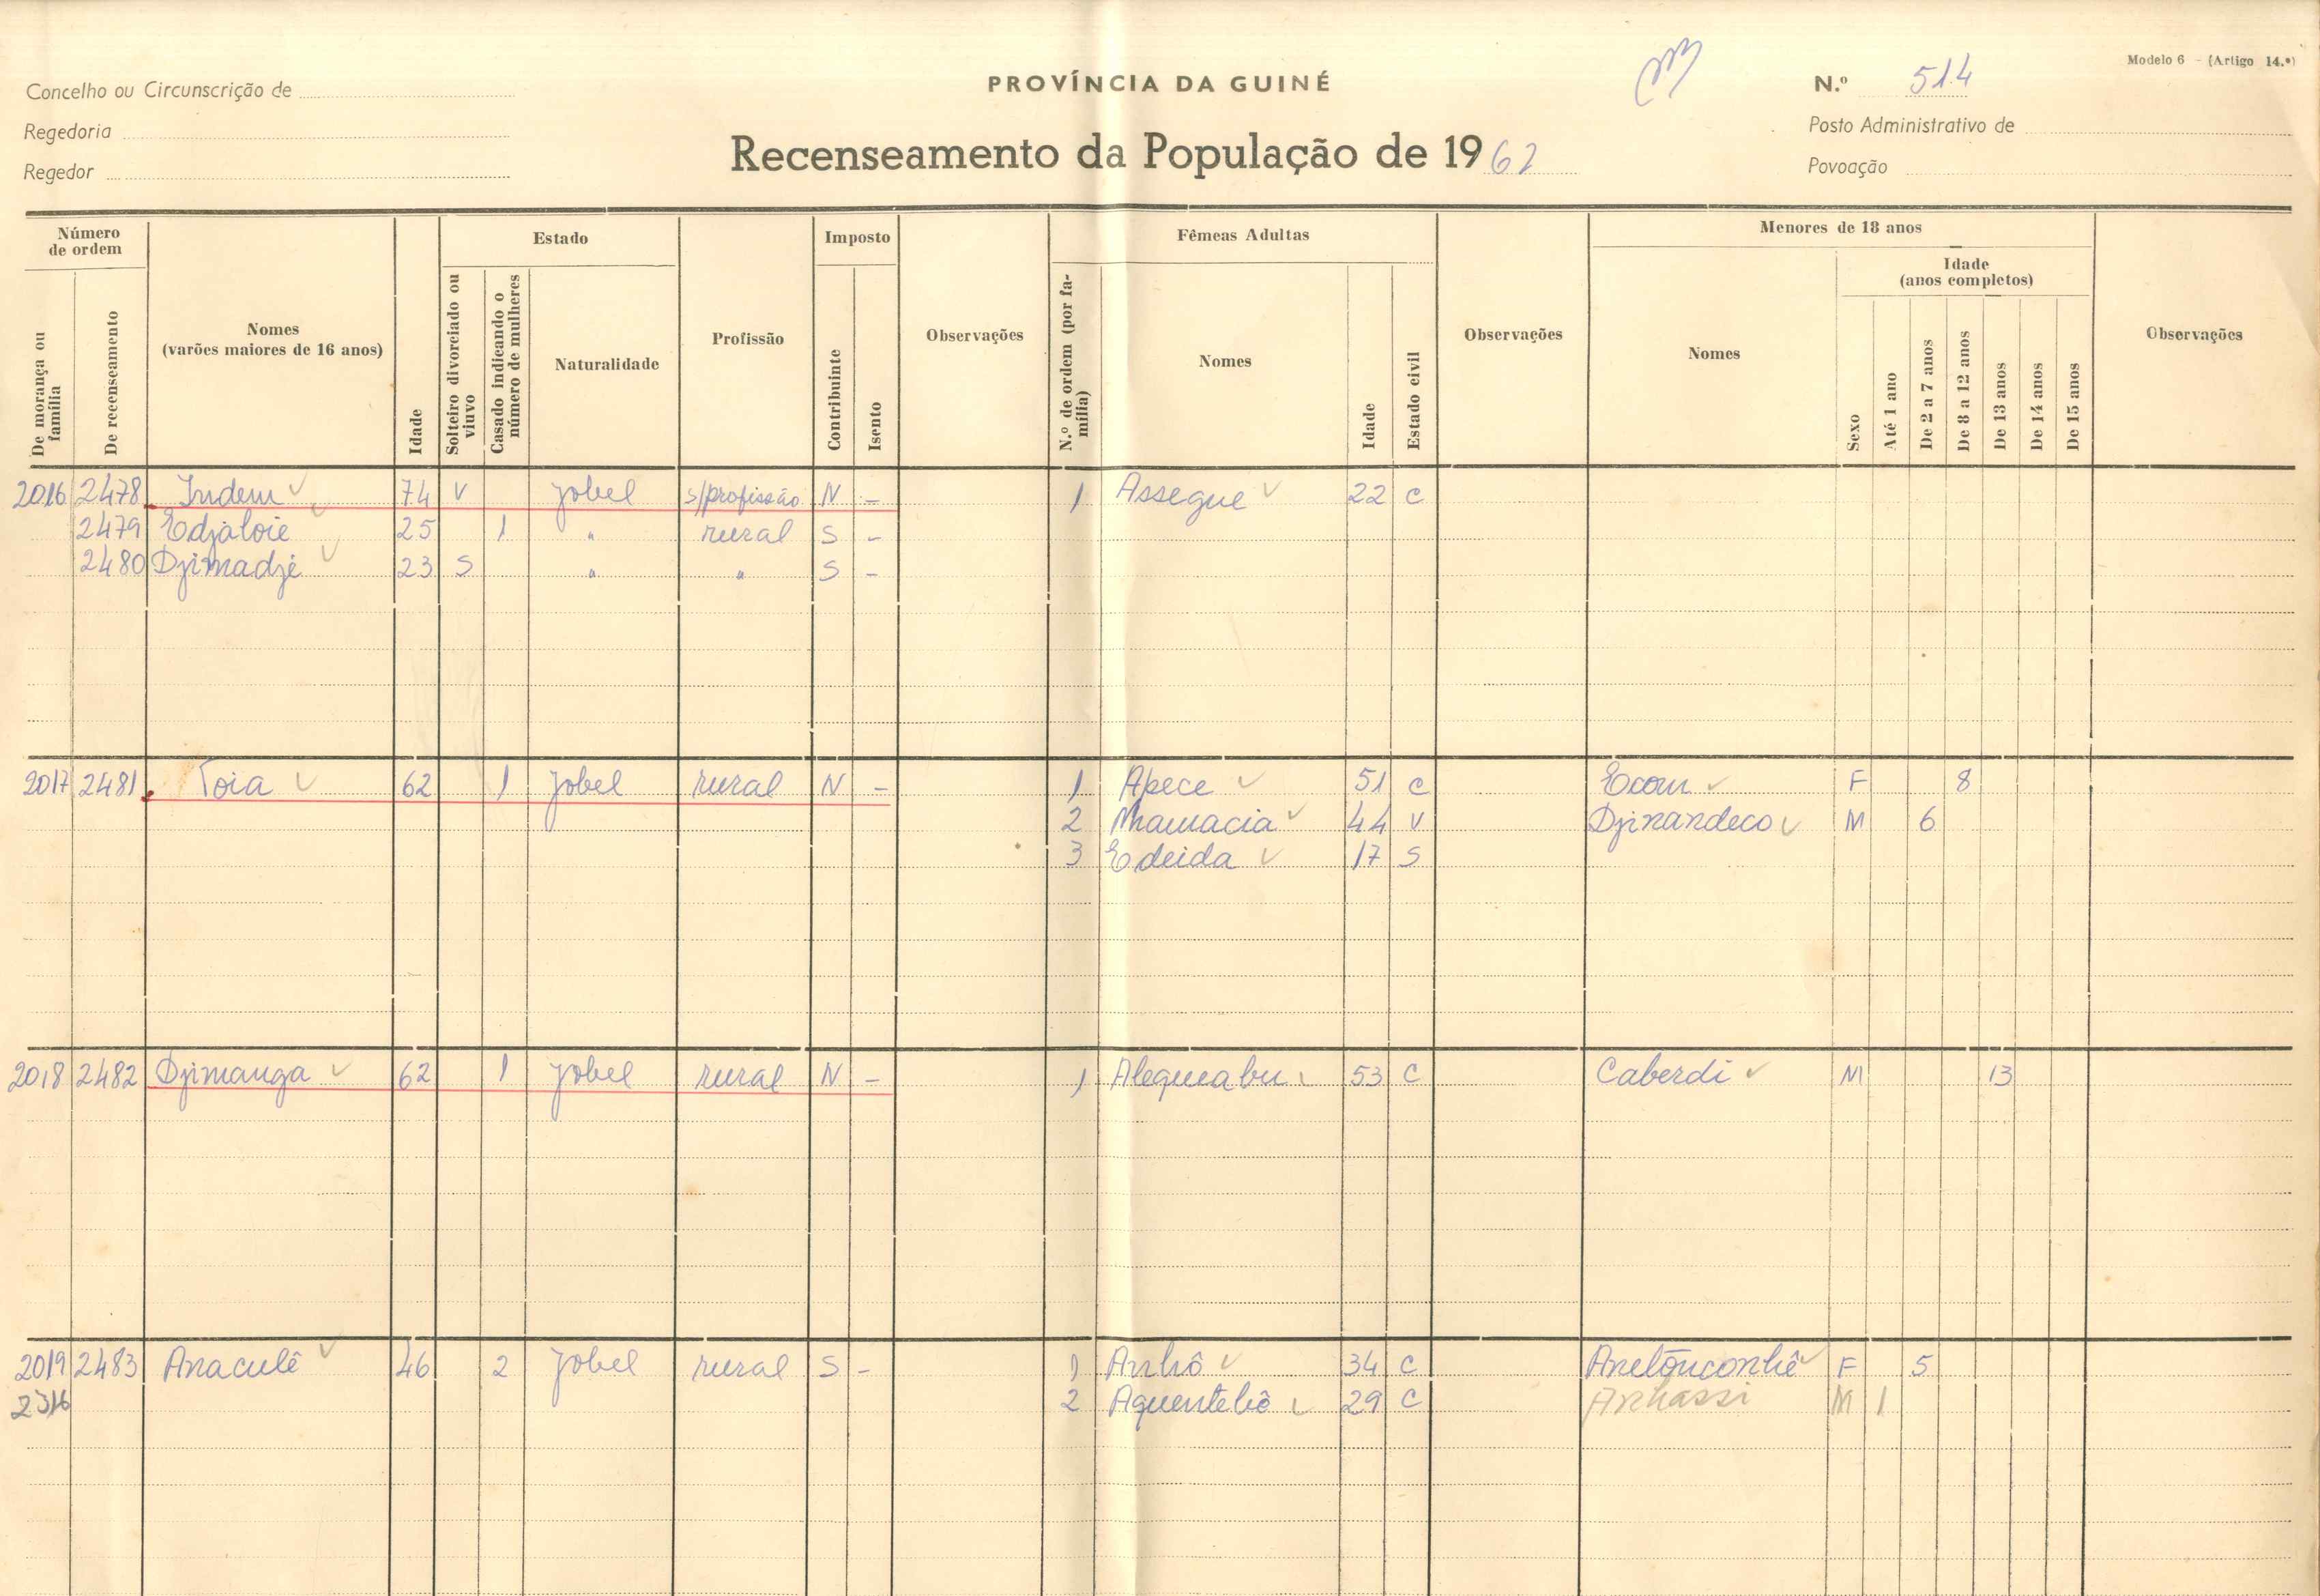 Modelo 6 - (Artigo 14.º)
Concelho ou Circunscrição de
PROVÍNCIA DA GUINÉ
N.º 514
Regedoria
Posto Administrativo de
Recenseamento da População de 1962
Regedor
Povoação
Número de ordem
De morança ou família
De recenseamento
Nomes
(varões maiores de 16 anos)
Idade
Estado
Solteiro divorciado ou viuvo
Casado indicando o número de mulheres
Naturalidade
Profissão
Imposto
Contribuinte
Isento
Observações
Fêmeas Adultas
N.º de ordem (por família)
Nomes
Idade
Estado civil
Observações
Menores de 18 anos
Nomes
Idade
(anos completos)
Sexo
Até 1 ano
De 2 a 7 anos
De 8 a 12 anos
De 13 anos
De 14 anos
De 15 anos
Observações
2016 2478 Indem 74 V Jobel s/profissão N - 1 Assegue 22 C
2479 Edjaloie 25 1 " rural S -
2480 Djimadjé 23 S " " S -
2017 2481 Toia 62 1 Jobel rural N - 1 Apece 51 C Ecom F 8
2 Mamacia 44 V Djinandeco M 6
3 Edeida 17 S
2018 2482 Djimanga 62 1 Jobel rural N - 1 Alegueabu 53 C Caberdi M 13
2019 2483 Anaculê 46 2 Jobel rural S - 1 Anhô 34 C Anetonconhê F 5
2316 2 Aquentebô 29 C Anhassi M 1